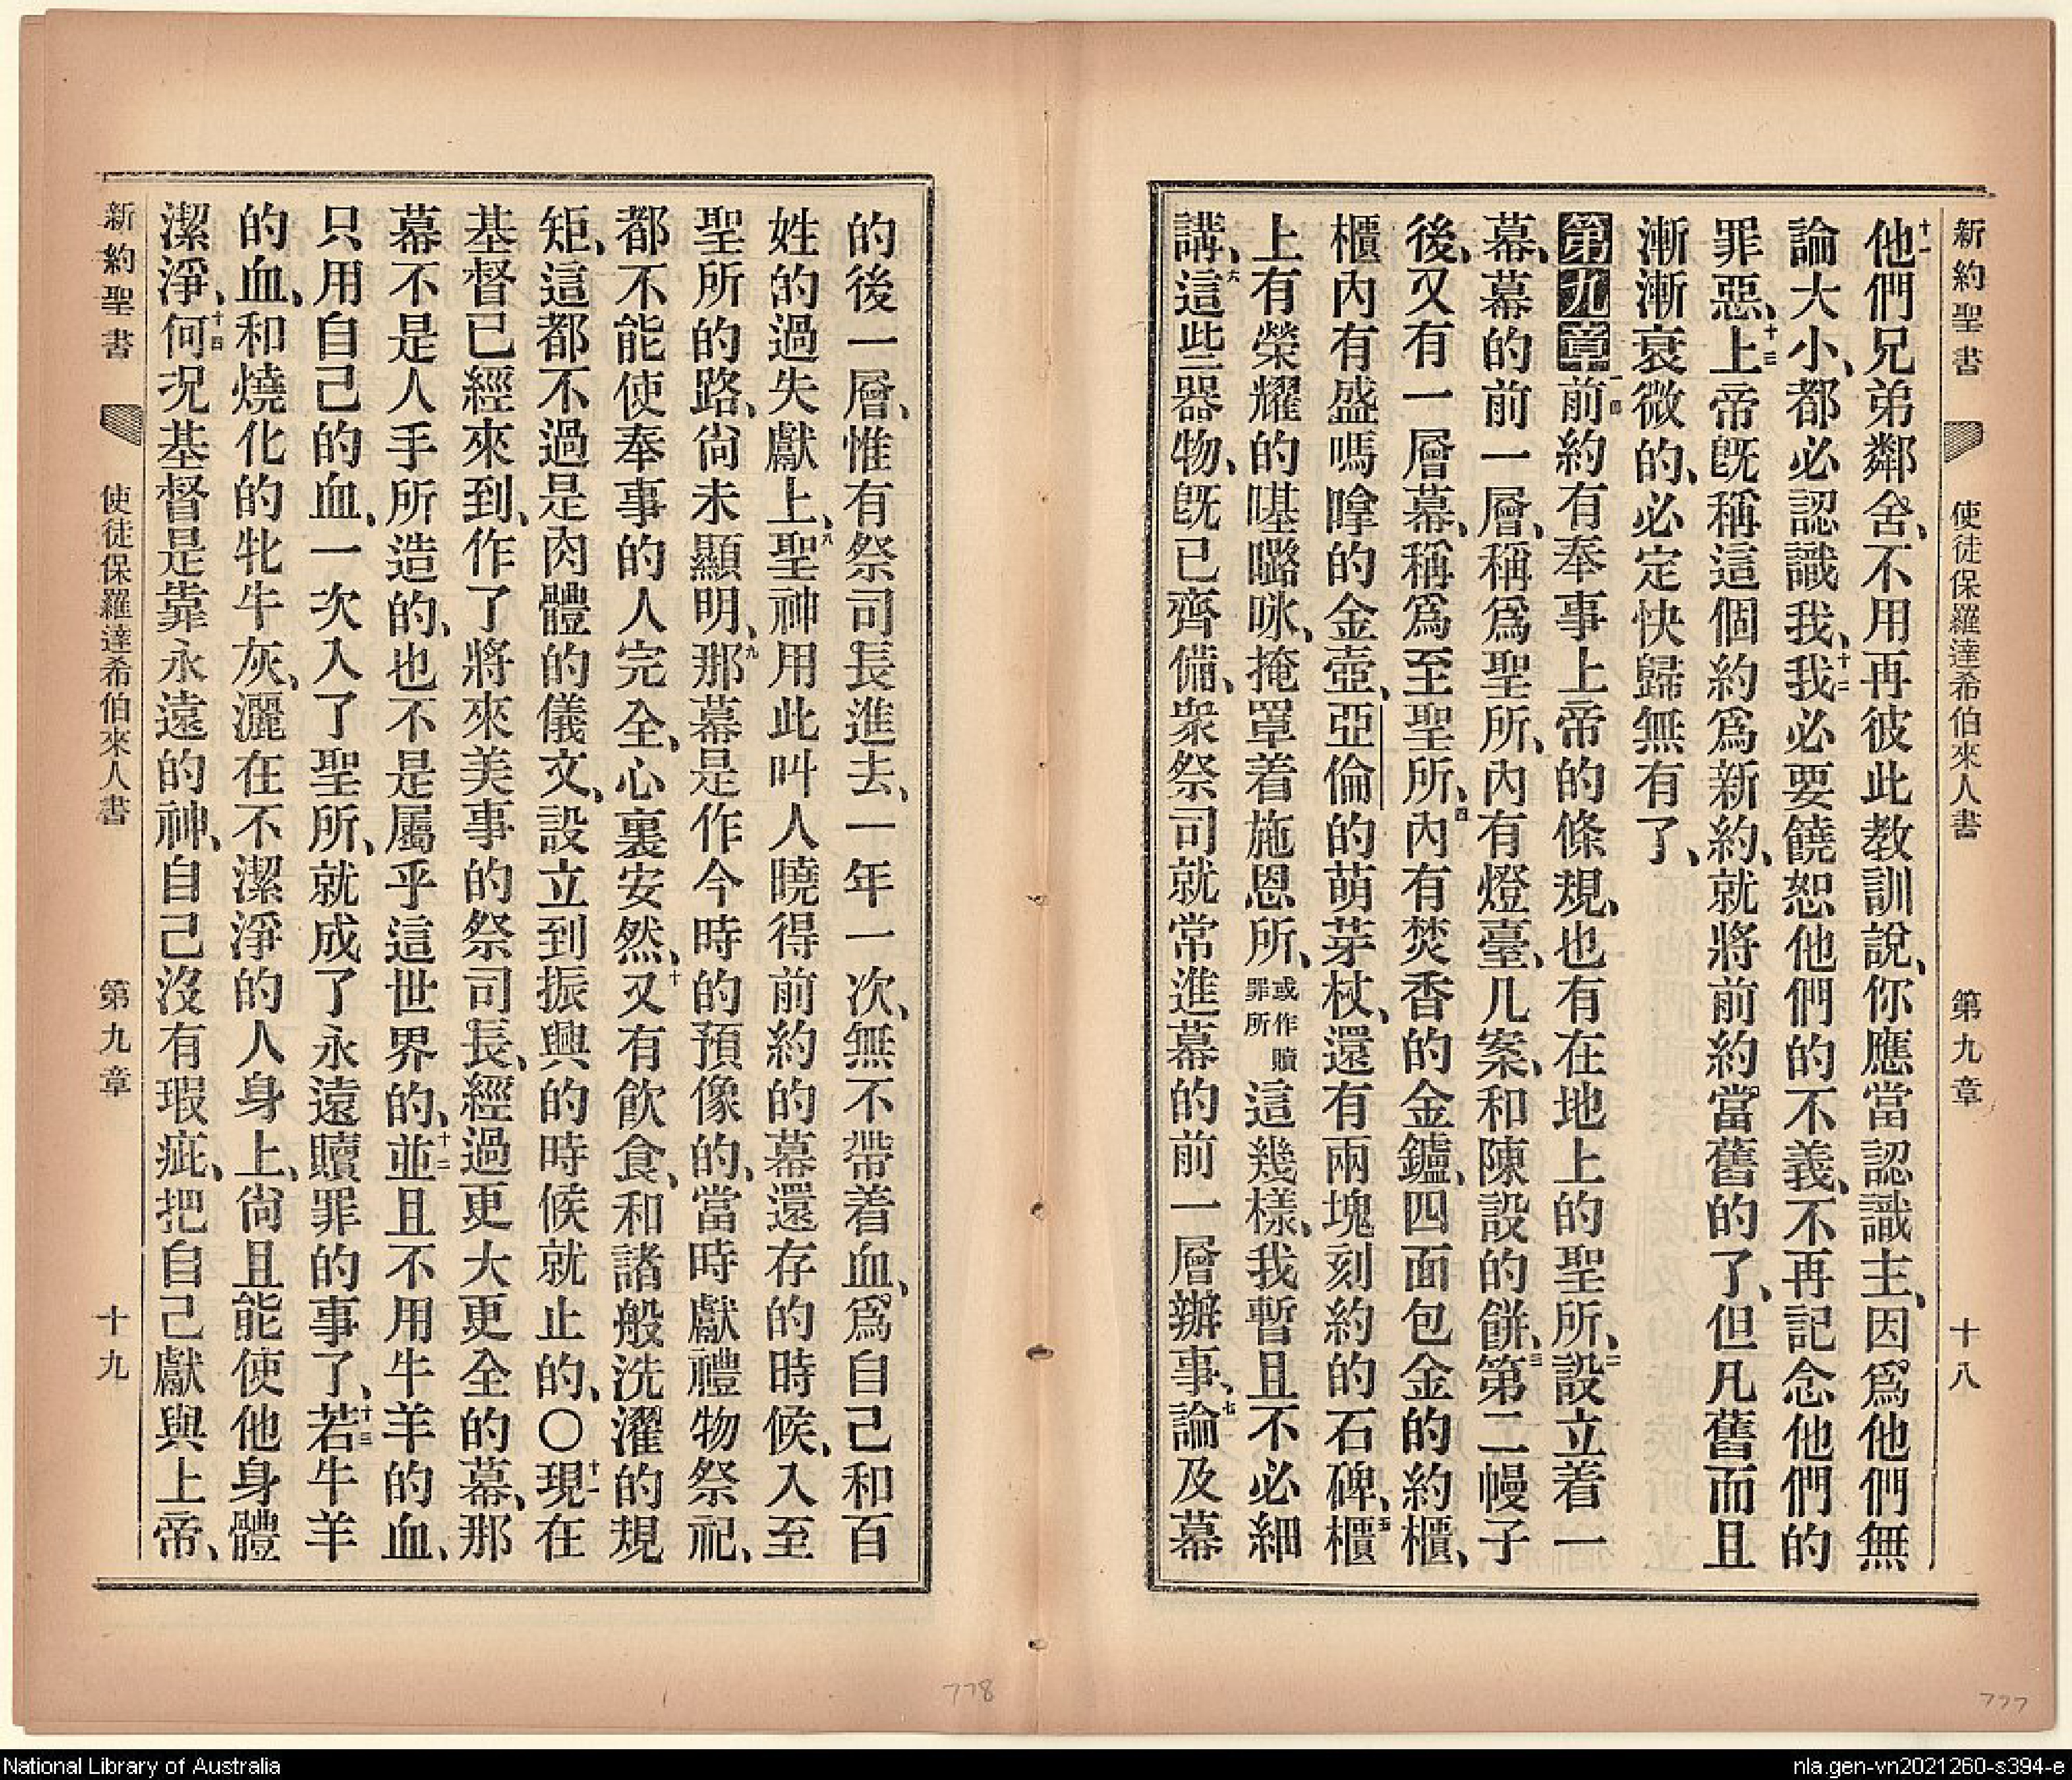 新約聖書　使徒保羅達希伯來人書　第九章　十八
十一他們兄弟鄰舍、不用再彼此教訓說、你應當認識主、因爲他們無
論大小、都必認識我、十二我必要饒恕他們的不義、不再記念他們的
罪惡、十三上帝旣稱這個約爲新約、就將前約當舊的了、但凡舊而且
漸漸衰微的、必定快歸無有了、
第九章一前約有奉事上帝的條規、也有在地上的聖所、二設立着一
幕、幕的前一層、稱爲聖所、內有燈臺、几案、和陳設的餅、三第二幔子
後、又有一層幕、稱爲至聖所、四內有焚香的金鑪、四面包金的約櫃、
櫃內有盛嗎嗱的金壺、亞倫的萌芽杖、還有兩塊刻約的石碑、五櫃
上有榮耀的㗲𡀔咏、掩罩着施恩所、或作贖罪所這幾樣、我暫且不必細
講、六這些器物、旣已齊備、衆祭司就常進幕的前一層辦事、七論及幕
的後一層、惟有祭司長進去、一年一次、無不帶着血、爲自己和百
姓的過失獻上、八聖神用此叫人曉得前約的幕還存的時候、入至
聖所的路、尙未顯明、九那幕是作今時的預像的、當時獻禮物祭祀、
都不能使奉事的人完全、心裏安然、十又有飮食、和諸般洗濯的規
矩、這都不過是肉體的儀文、設立到振興的時候就止的、〇十一現在
基督已經來到、作了將來美事的祭司長、經過更大更全的幕、那
幕不是人手所造的、也不是屬乎這世界的、十二並且不用牛羊的血、
只用自己的血、一次入了聖所、就成了永遠贖罪的事了、十三若牛羊
的血、和燒化的牝牛灰、灑在不潔淨的人身上、尙且能使他身體
潔淨、十四何况基督是靠永遠的神、自己沒有瑕疵、把自己獻與上帝、
新約聖書　使徒保羅達希伯來人書　第九章　十九
778
777
National Library of Australia
nla.gen-vn2021260-s394-e